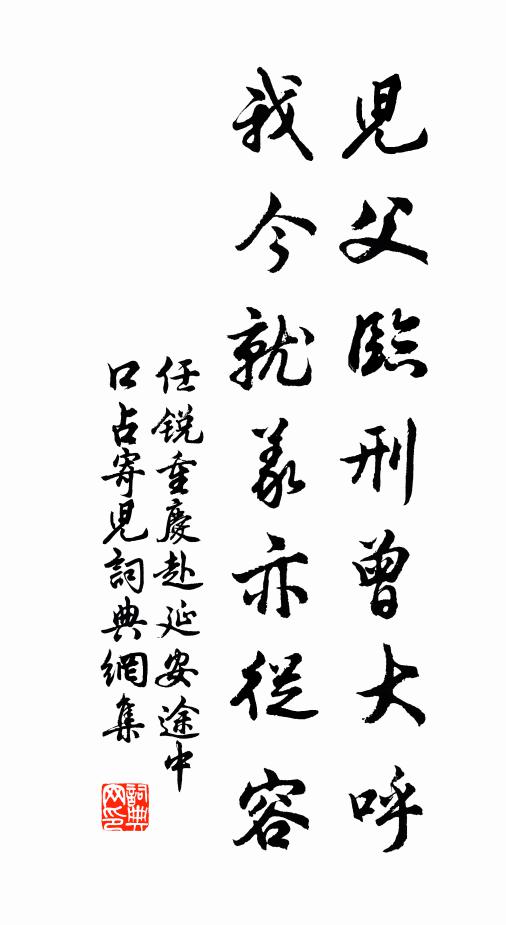 兒父臨刑曾大呼
我今就義亦從容
任銳重慶赴延安途中
口占寄兒詞典網集
詞典网印